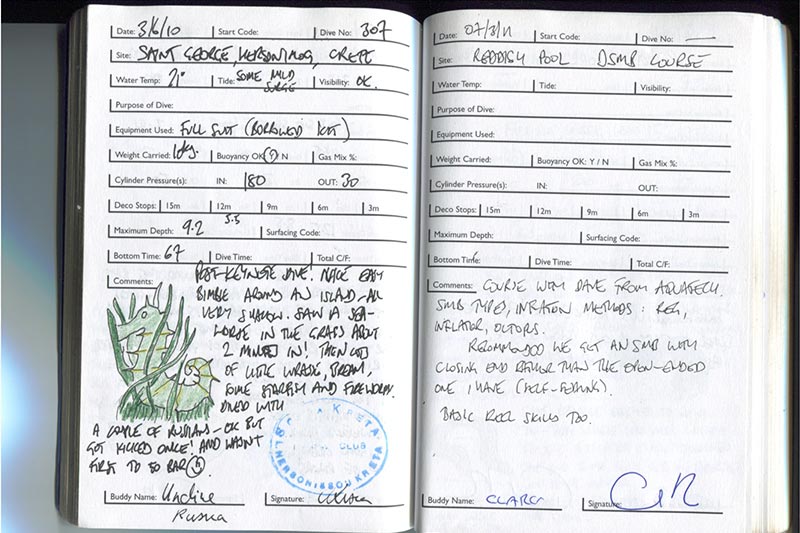 Date: 3/6/10 Start Code: Dive No: 307
Site: SAINT GEORGE, HERSONISSOS, CRETE
Water Temp: 21° Tide: SOME MILD SURGE Visibility: OK.
Purpose of Dive:
Equipment Used: FULL SUIT (BORROWED KIT)
Weight Carried: 10kg. Buoyancy OK: Y / N Gas Mix %:
Cylinder Pressure(s): IN: 180 OUT: 30
Deco Stops: 15m 12m 9m 6m 3m
5.5
Maximum Depth: 9.2 Surfacing Code:
Bottom Time: 67 Dive Time: Total C/F:
Comments: POST-KEYNOTE DIVE! NICE EASY
BIMBLE AROUND AN ISLAND - ALL
VERY SHALLOW. SAW A SEA-
HORSE IN THE GRASS ABOUT
2 MINUTES IN! THEN LOTS
OF LITTLE WRASSE, BREAM,
SOME STARFISH AND FIREWORM.
DIVED WITH
A COUPLE OF RUSSIANS - OK BUT
GOT KICKED ONCE! AND WASN'T
FIRST TO 50 BAR
Buddy Name: Signature:
Russia
KPETA
CLUB
HERSONISSOU KRETA
Date: 07/3/11 Start Code: Dive No: —
Site: REDDISH POOL DSMB COURSE
Water Temp: Tide: Visibility:
Purpose of Dive:
Equipment Used:
Weight Carried: Buoyancy OK: Y / N Gas Mix %:
Cylinder Pressure(s): IN: OUT:
Deco Stops: 15m 12m 9m 6m 3m
Maximum Depth: Surfacing Code:
Bottom Time: Dive Time: Total C/F:
Comments: COURSE WITH DAVE FROM AQUATECH.
SMB TYPES, INFLATION METHODS: REG,
INFLATOR, OCTOPUS.
RECOMMENDED WE GET AN SMB WITH
CLOSING END RATHER THAN THE OPEN-ENDED
ONE I HAVE (SELF-SEALING).
BASIC REEL SKILLS TOO.
Buddy Name: CLARE Signature: